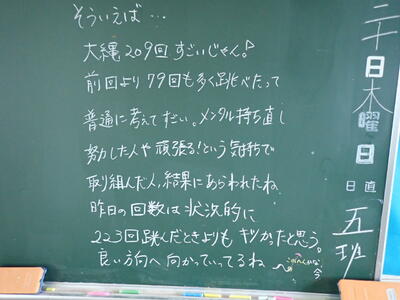 そういえば…
大縄209回すごいじゃん♪
前回より79回も多く跳べたって
普通に考えてすごい。メンタル持ち直し
努力した人や頑張る!という気持ちで
取り組んだ人、結果にあらわれたね。
昨日の回数は状況的に
223回跳んだときよりもキツかったと思う。
良い方向へ向かっていってるね
今
二十日木曜日
日直
五班